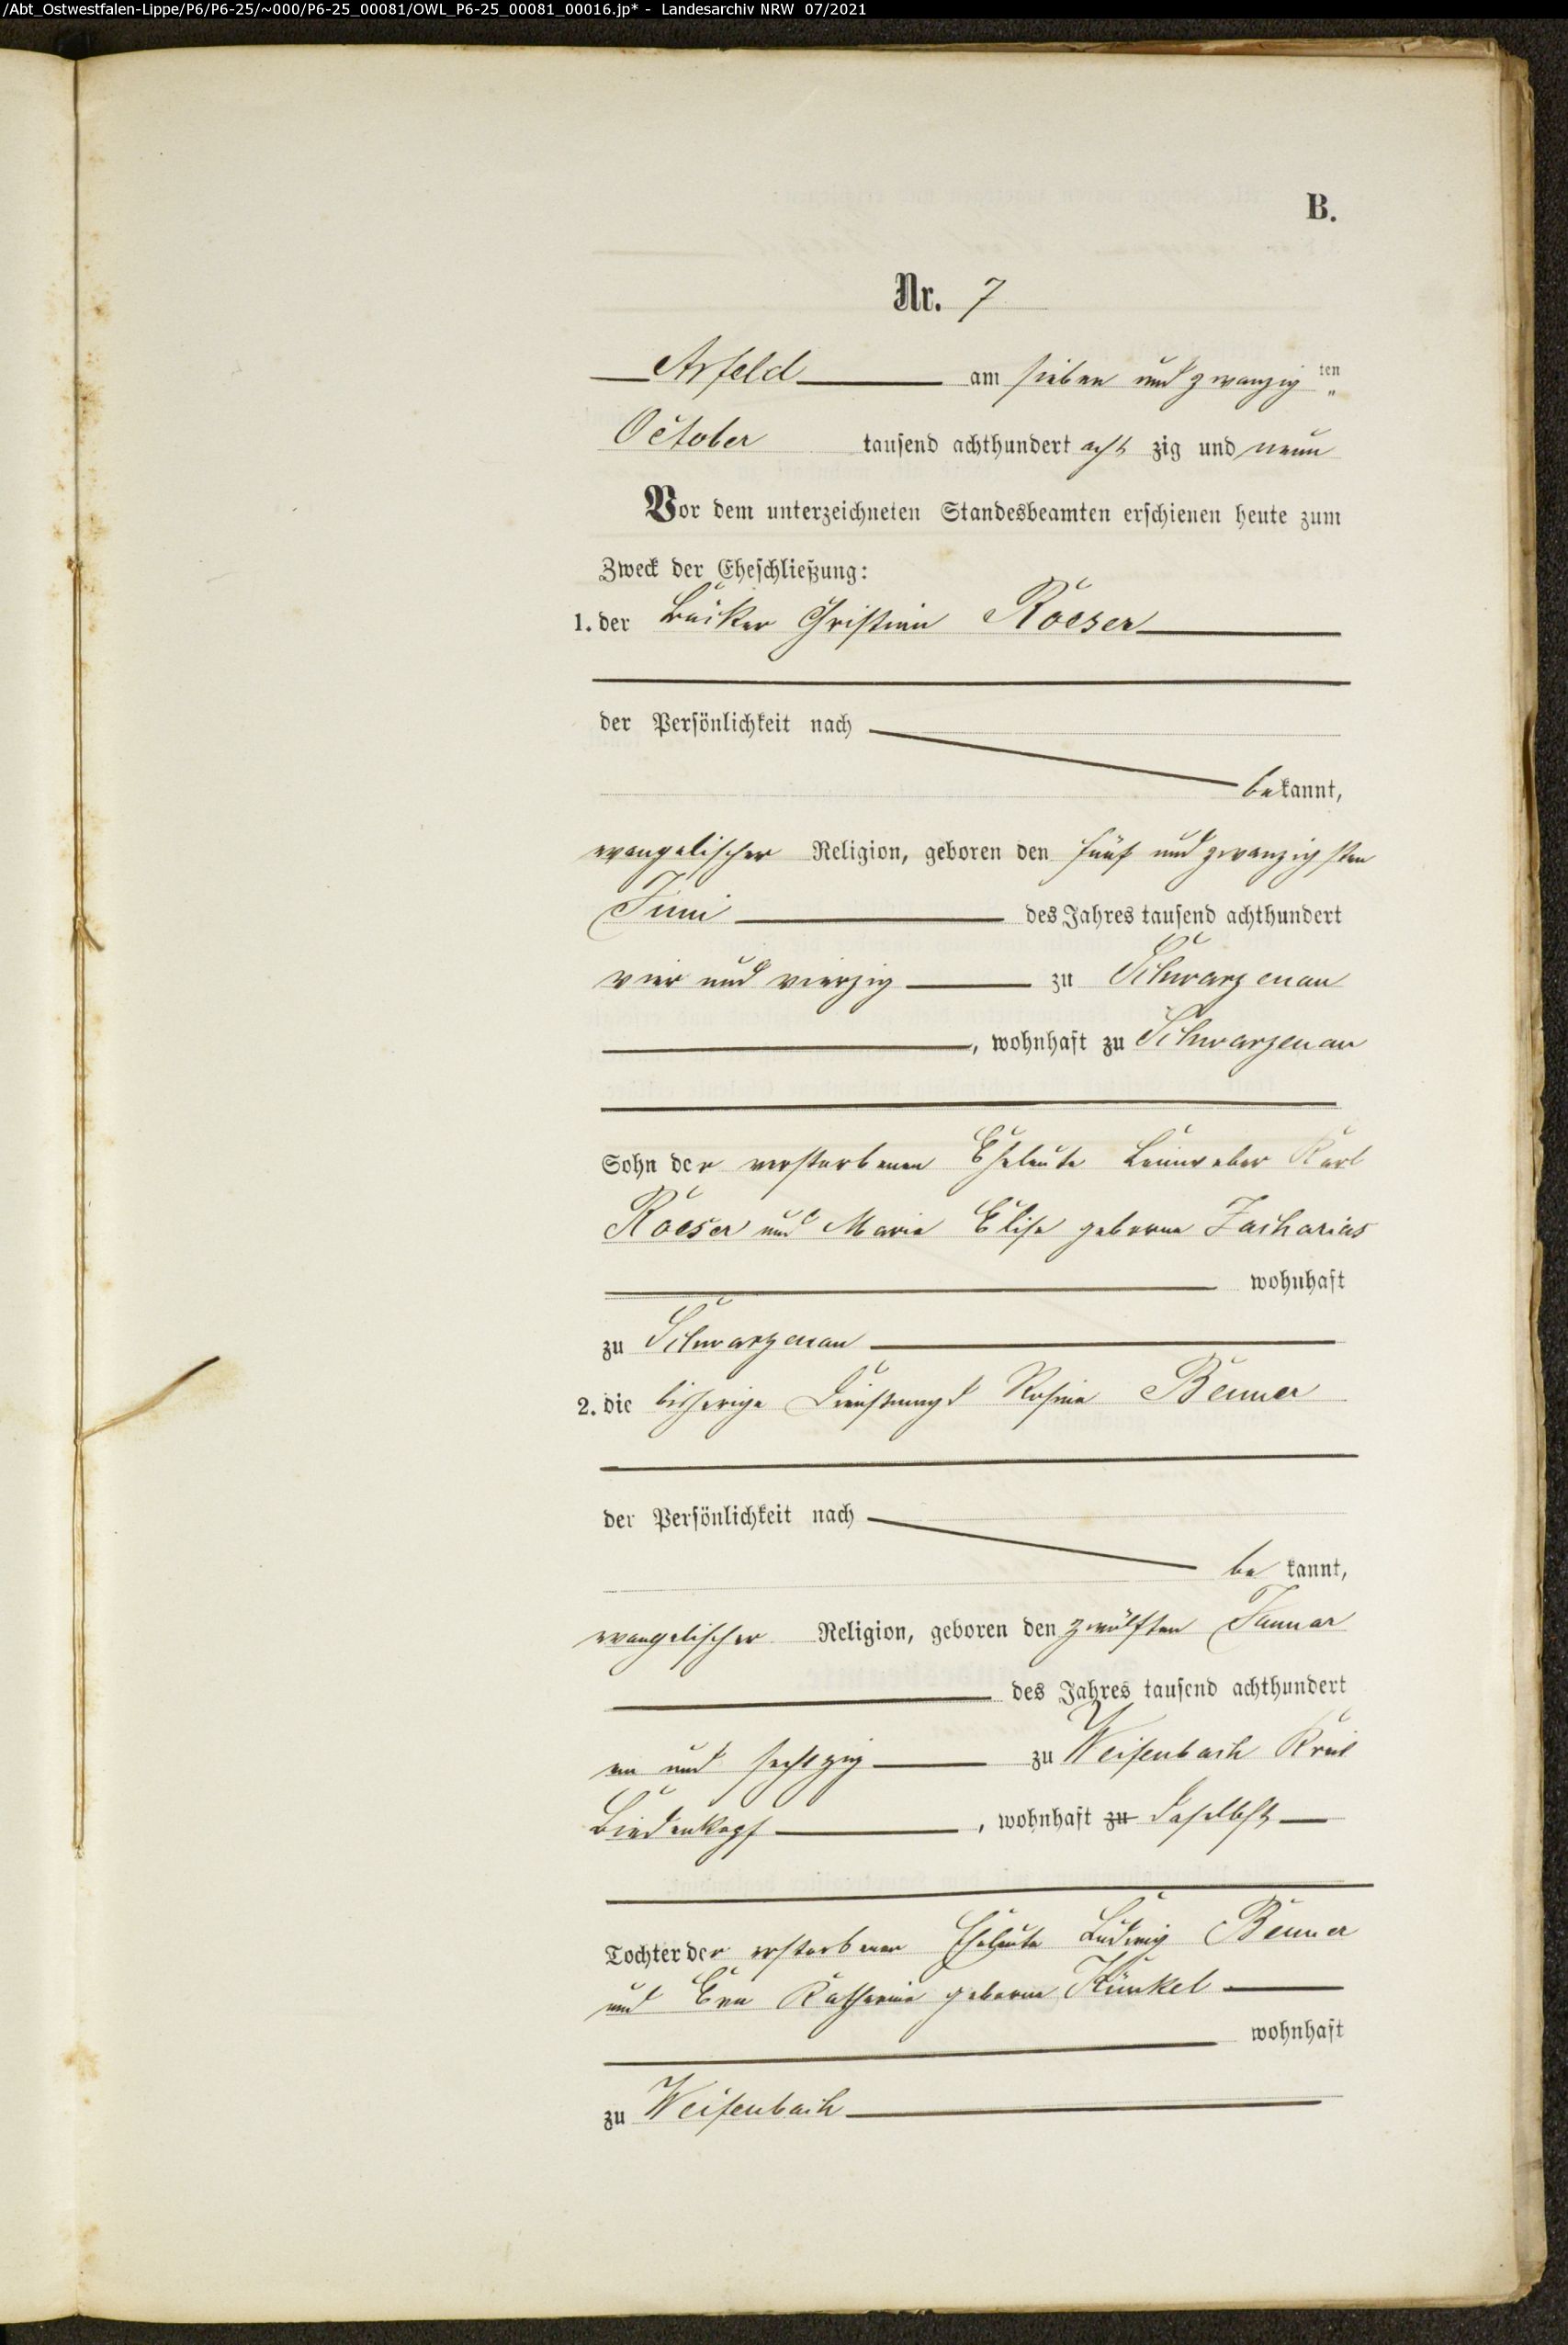 /Abt_Ostwestfalen-Lippe/P6/P6-25/~000/P6-25_00081/OWL_P6-25_00081_00016.jp* - Landesarchiv NRW 07/2021
B.
Nr. 7
Arfeld am sieben und zwanzig ten
October tausend achthundert acht zig und neun
Vor dem unterzeichneten Standesbeamten erschienen heute zum
Zweck der Eheschließung:
1. der Bäcker Christian Roeser
der Persönlichkeit nach
bekannt,
evangelischer Religion, geboren den fünf und zwanzigsten
Juni des Jahres tausend achthundert
vier und vierzig zu Schwarzenau
, wohnhaft zu Schwarzenau
Sohn der verstorbenen Eheleute Leinweber Karl
Roeser und Marie Elise geborne Zacharias
wohnhaft
zu Schwarzenau
2. die bisherige Dienstmagd Rosine Benner
der Persönlichkeit nach
be kannt,
evangelischer Religion, geboren den zwölften Januar
des Jahres tausend achthundert
ein und sechszig zu Weifenbach Kreis
Biedenkopf, wohnhaft zu daselbst
Tochter der verstorbenen Eheleute Ludwig Benner
und Eva Katharine geborne Künkel
wohnhaft
zu Weifenbach